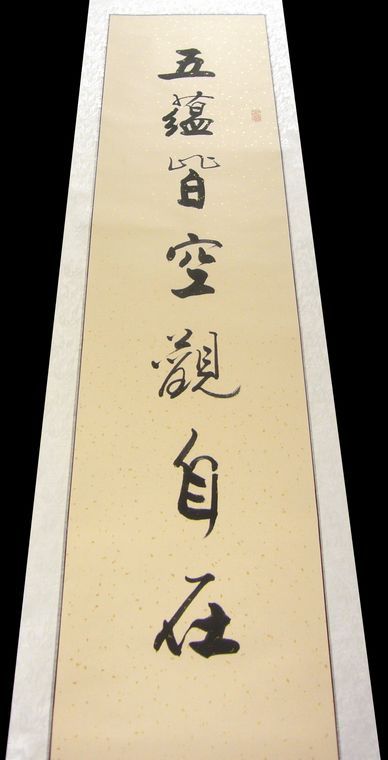 五蘊皆空觀自在